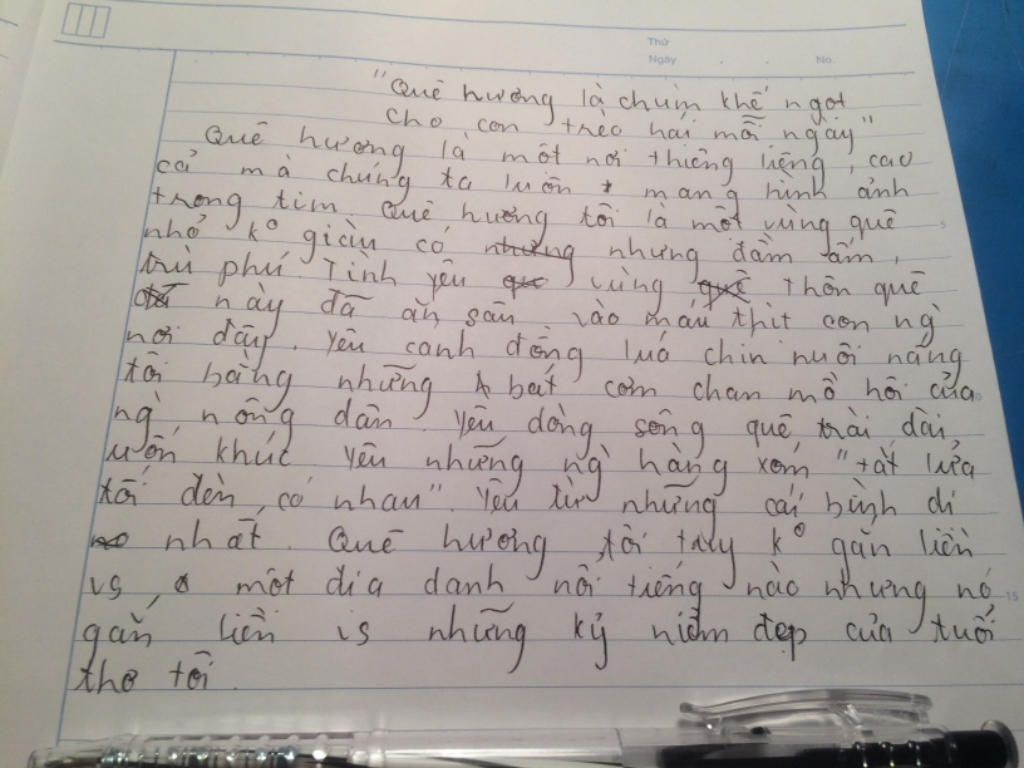 Thứ
Ngày . . No.
"Quê hương là chùm khế ngọt
Cho con trèo hái mỗi ngày"
Quê hương là một nơi thiêng liêng, cao
cả mà chúng ta luôn mang hình ảnh
trong tim. Quê hương tôi là một vùng quê
5
nhỏ k° giàu có những nhưng đầm ấm,
trù phú. Tình yêu que vùng quê thôn quê
này đã ăn sâu vào máu thịt con ng`
nơi đây. Yêu canh đồng luá chín nuôi nấng
tôi bằng những bát cơm chan mồ hôi của
ng` nông dân. Yêu dòng sông quê trải dài,
uốn khúc. Yêu những ng` hàng xóm "tắt lửa
tối đèn có nhau". Yêu từ những cái bình dị
nhất. Quê hương tôi tuy k° gắn liền
vs một địa danh nổi tiếng nào nhưng nó
15
gắn liền vs những kỷ niệm đẹp của tuổi
thơ tôi.